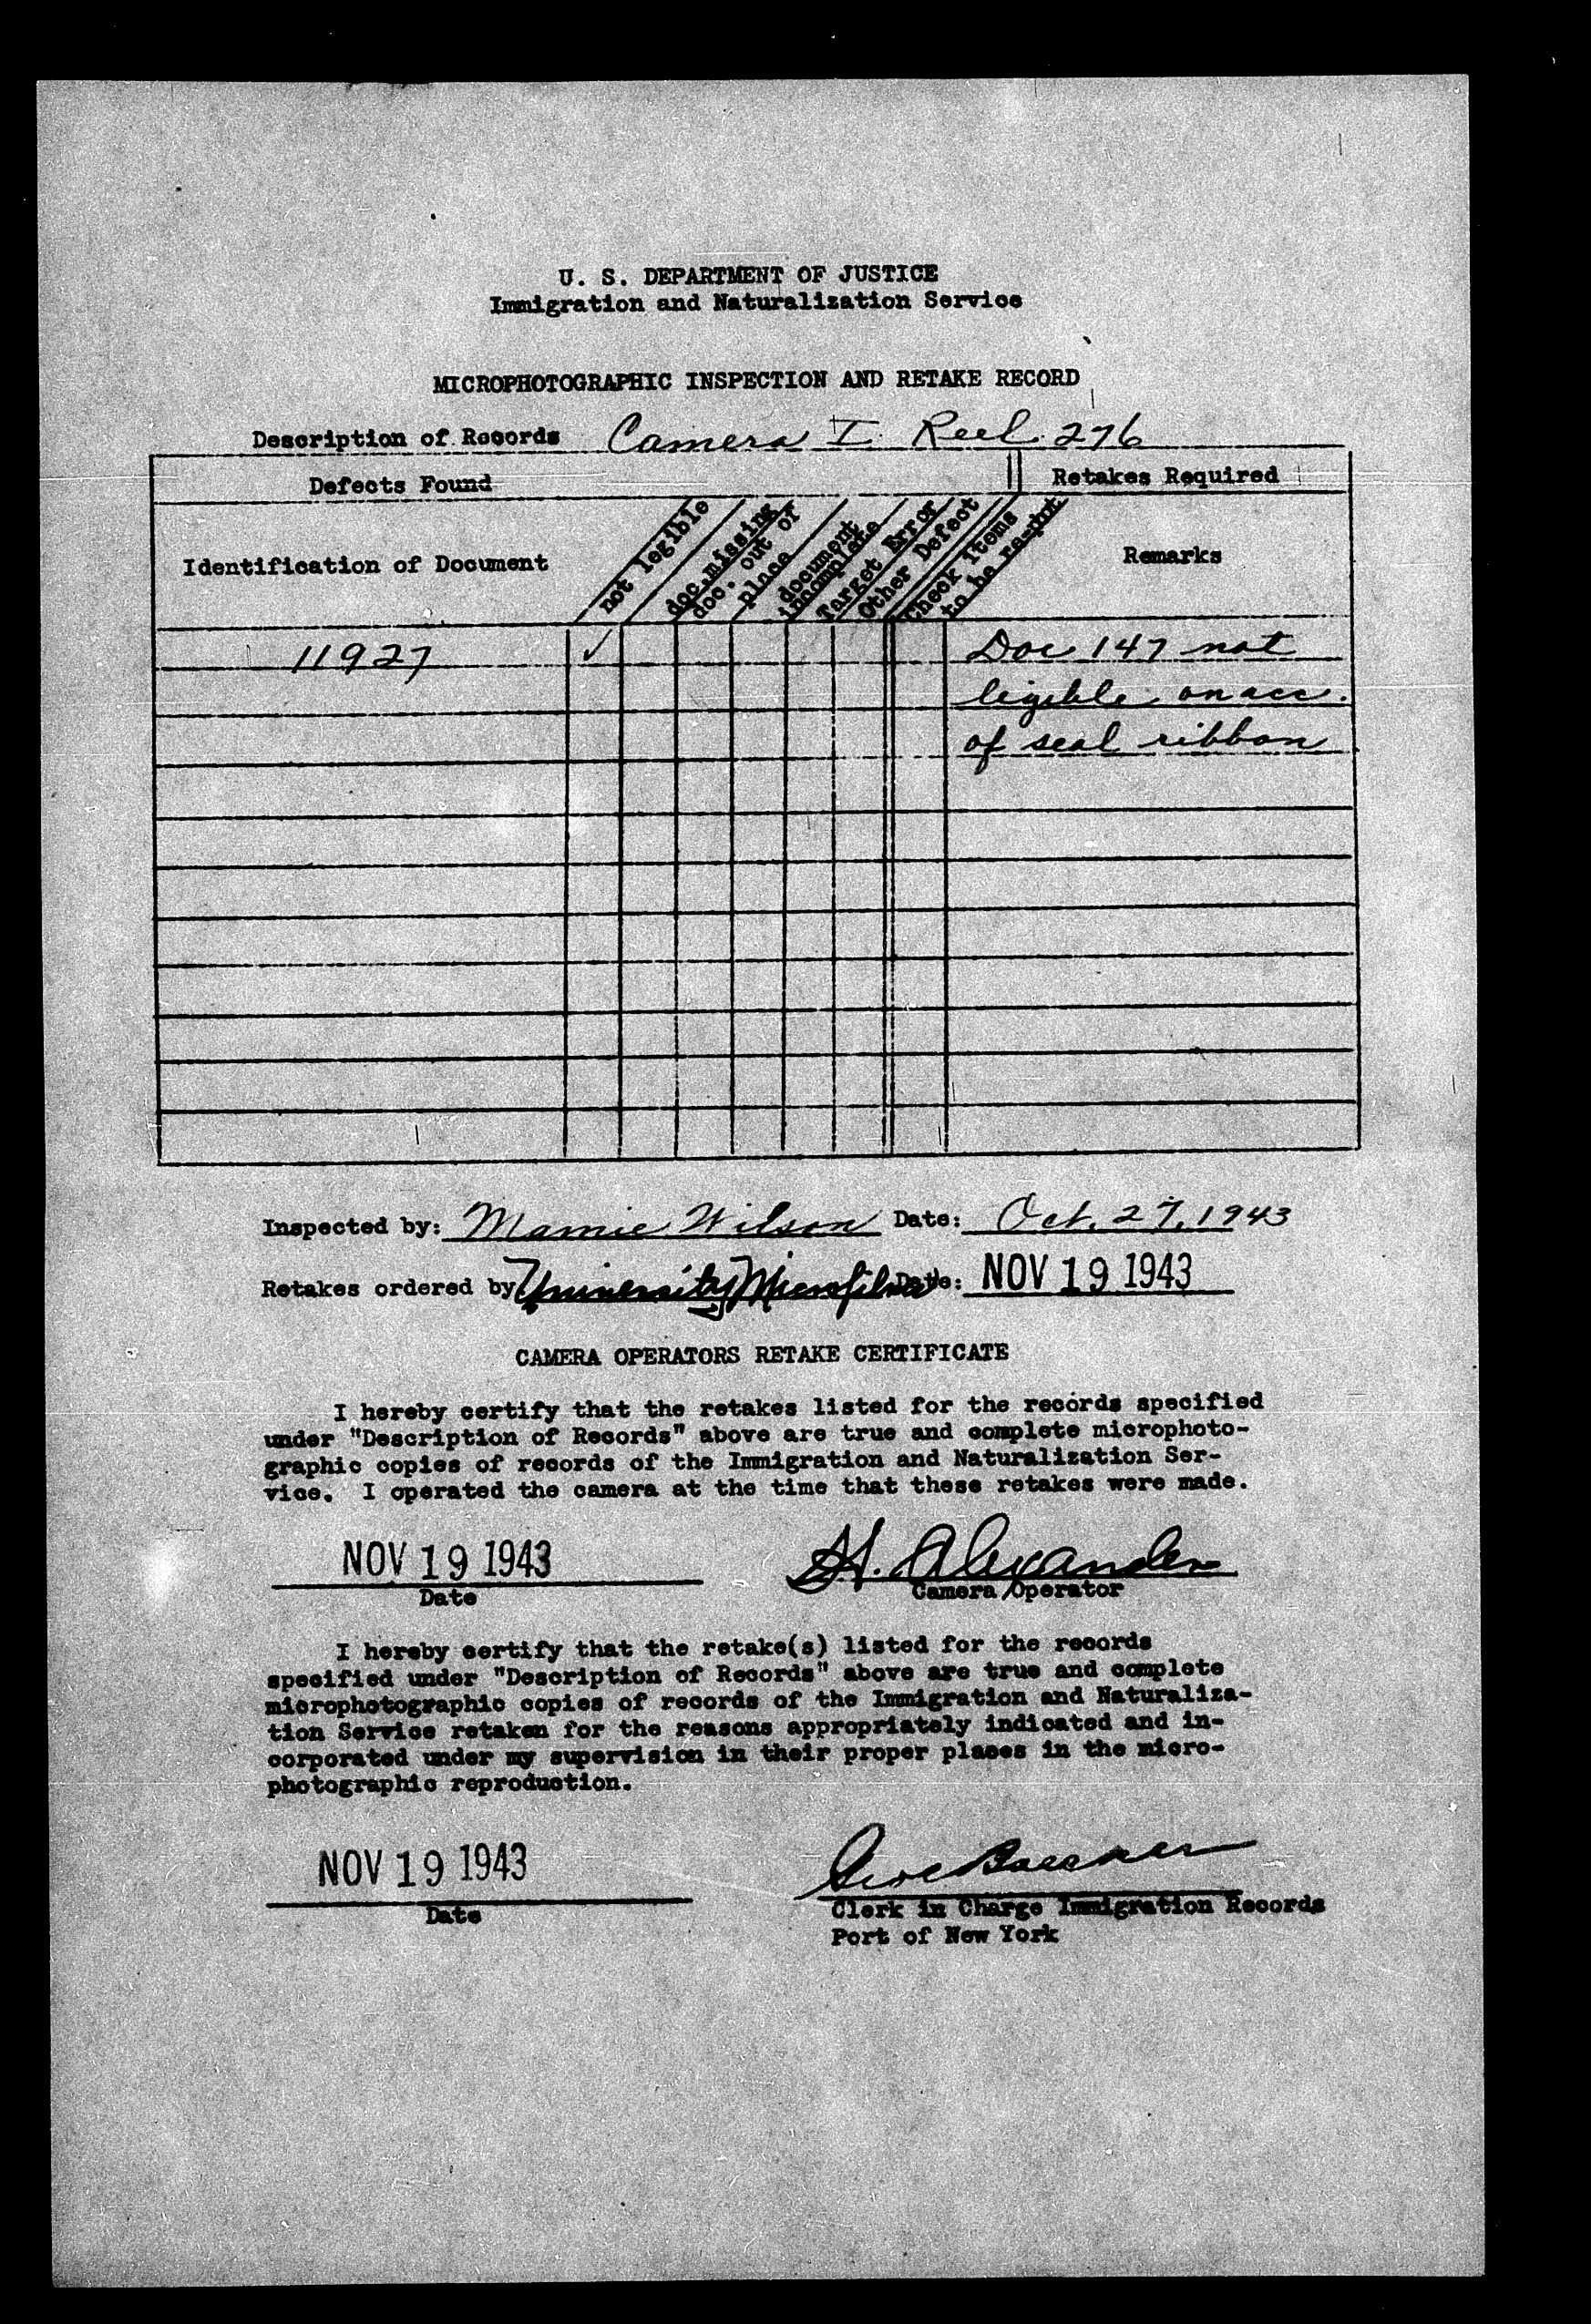 U. S. DEPARTMENT OF JUSTICE
Immigration and Naturalization Service
MICROPHOTOGRAPHIC INSPECTION AND RETAKE RECORD
Description of Records Camera I Reel 276
Defects Found
Retakes Required
Identification of Document
not legible
doc. missing
doc. out of
place
document
incomplete
Target Error
Other Defect
Check items
to be re-pho
Remarks
11927 ✓ Doc 147 not
legible on acc.
of seal ribbon
Inspected by: Mamie Wilson Date: Oct. 27, 1943
Retakes ordered by University Microfilms Date: NOV 19 1943
CAMERA OPERATORS RETAKE CERTIFICATE
I hereby certify that the retakes listed for the records specified
under "Description of Records" above are true and complete microphoto-
graphic copies of records of the Immigration and Naturalization Ser-
vice. I operated the camera at the time that these retakes were made.
NOV 19 1943 H. Alexander
Date Camera Operator
I hereby certify that the retake(s) listed for the records
specified under "Description of Records" above are true and complete
microphotographic copies of records of the Immigration and Naturaliza-
tion Service retaken for the reasons appropriately indicated and in-
corporated under my supervision in their proper places in the micro-
photographic reproduction.
NOV 19 1943
Date
Clerk in Charge Immigration Records
Port of New York